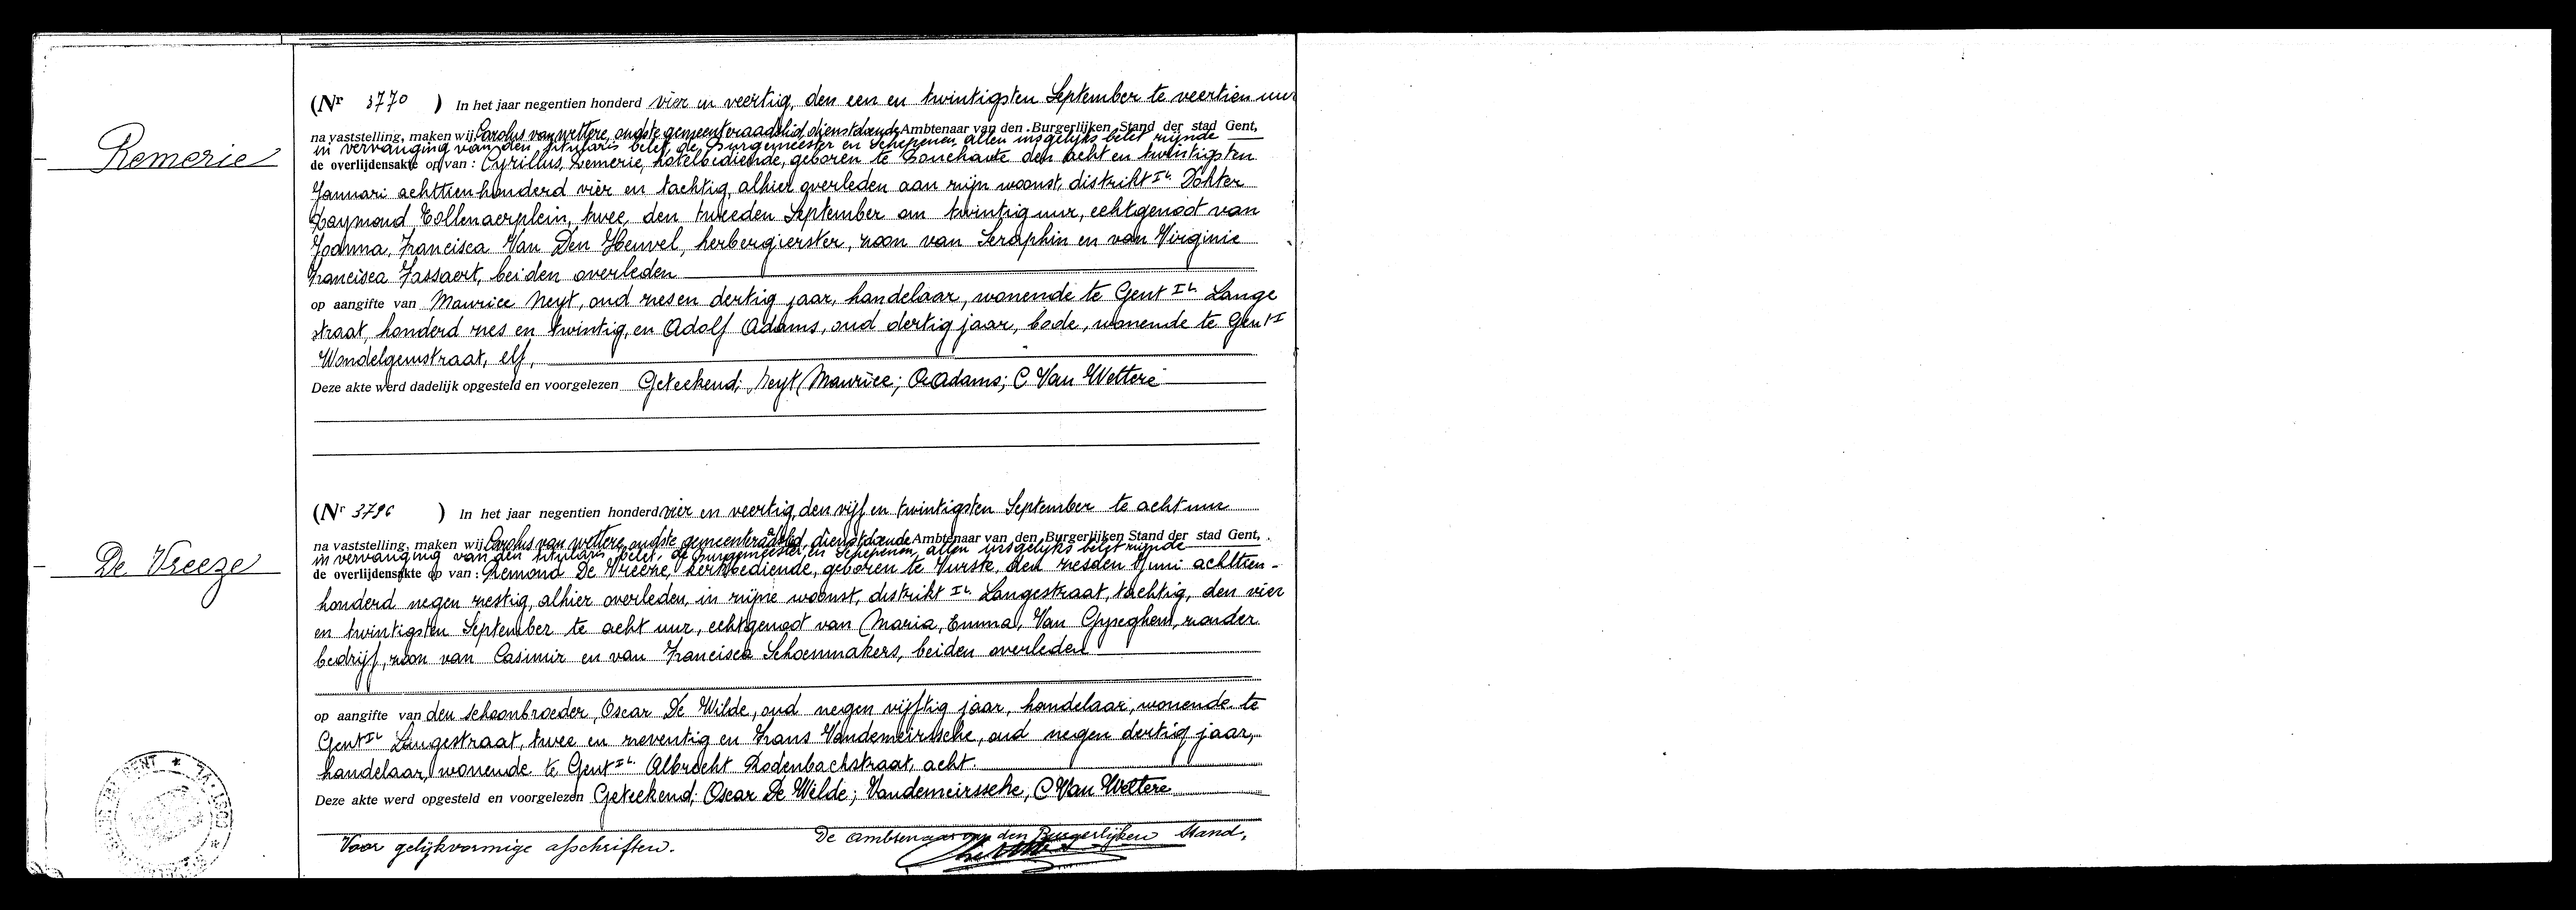 Remerie
(Nr 3770 ) In het jaar negentien honderd vier en veertig, den een en twintigsten September te veertien uur
na vaststelling, maken wij Carolus van wettere, oudste gemeenteraadslid, dienstdoende Ambtenaar van den Burgerlijken Stand der stad Gent,
in vervanging van den titularis belet, de Burgemeester en Schepenen allen insgelijks belet zijnde
de overlijdensakte op van : Cyrillus, Remerie, hotelbediende, geboren te Bouchaute den acht en twintigsten
Januari achttienhonderd vier en tachtig, alhier overleden aan zijn woonst, distrikt Ia. Dokter
Raymond Tollenaerplein, twee, den tweeden September om twintig uur, echtgenoot van
Joanna, Francisca Van Den Heuvel, herbergierster, zoon van Seraphin en van Virginie
Francisca Fassaert, beiden overleden
op aangifte van Maurice Neyt, oud zes en dertig jaar, handelaar, wonende te Gent Ia. Lange
straat, honderd zes en twintig, en Adolf Adams, oud dertig jaar, bode, wonende te Gent I
Wondelgemstraat, elf,
Deze akte werd dadelijk opgesteld en voorgelezen Geteekend; Neyt Maurice; A Adams; C Van Wettere
De Vreeze
(Nr 3796 ) In het jaar negentien honderd vier en veertig, den vijf en twintigsten September te acht uur
na vaststelling, maken wij Carolus van wettere, oudste gemeenteraadslid, dienstdoende Ambtenaar van den Burgerlijken Stand der stad Gent,
in vervanging van den titularis belet, de Burgemeester en Schepenen, allen insgelijks belet zijnde
de overlijdensakte op van : Remond De Vreeze, kerkbediende, geboren te Vurste, den zesden Juni achttien-
honderd negen zestig, alhier overleden, in zijne woonst, distrikt Ia. Langestraat, tachtig, den vier
en twintigsten September te acht uur, echtgenoot van Maria, Emma, Van Gyseghem, zonder
bedrijf, zoon van Casimir en van Francisca Schoenmakers, beiden overleden
op aangifte van den schoonbroeder, Oscar De Wilde, oud negen vijftig jaar, handelaar, wonende te
Gent Ia Langestraat, twee en zeventig en Frans Vandemeirssche, oud negen dertig jaar,
handelaar, wonende te Gent Ia. Albrecht Rodenbachstraat, acht.
Deze akte werd opgesteld en voorgelezen Geteekend; Oscar De Wilde; Vandemeirssche, C Van Wettere
Voor gelijkvormige afschriften. De Ambtenaar van den Burgerlijken Stand,